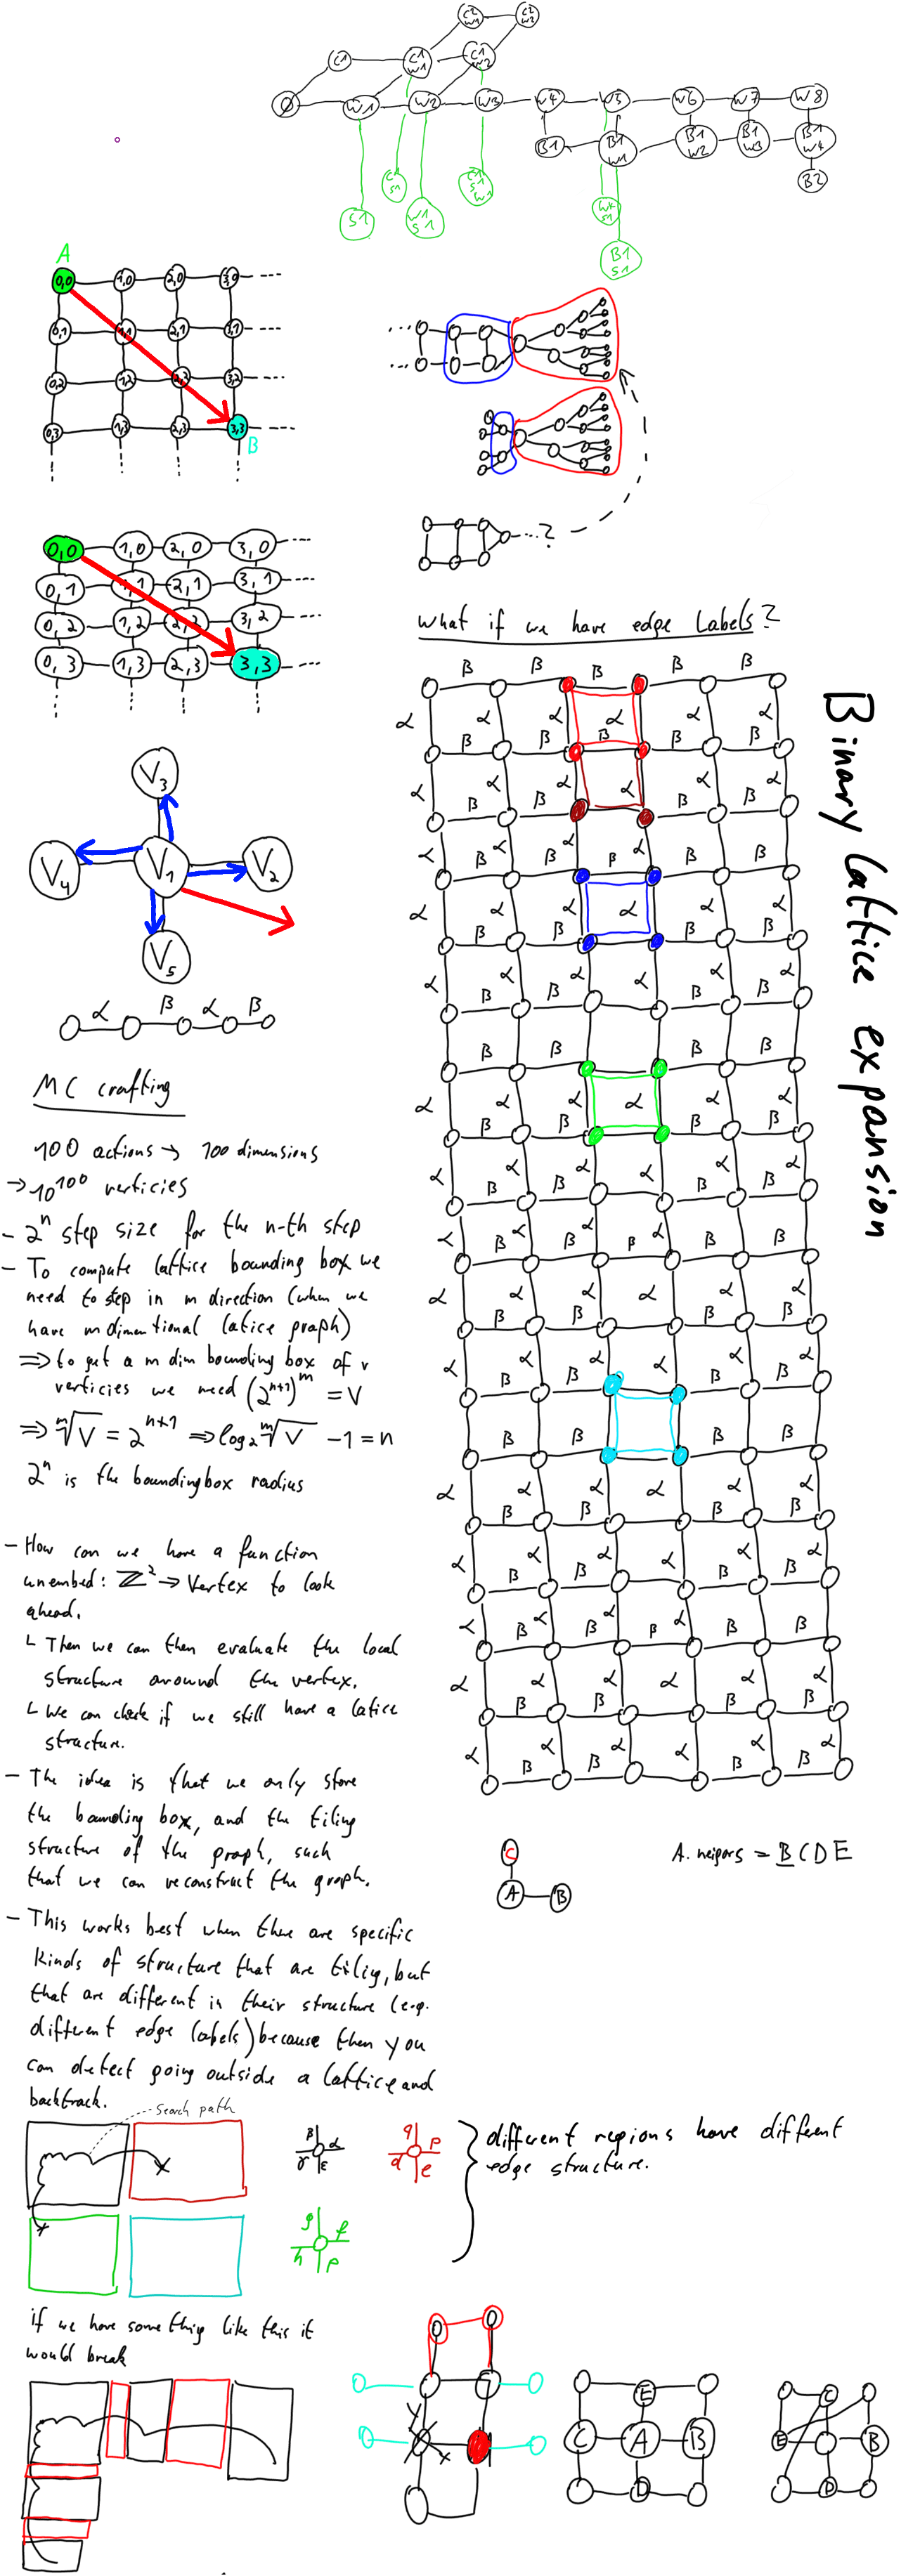 C2 W1
C2 W2
C1
C1 W1
C1 W2
∅
W1
W2
W3
W4
W5
W6
W7
W8
B1
B1 W1
B1 W2
B1 W3
B1 W4
B2
C1 S1
C1 S1 W1
S1
W1 S1
B1 S1
A
0,0 1,0 2,0 3,0
0,1 1,1 2,1 3,1
0,2 1,2 2,3 3,2
0,3 1,3 2,3 3,3
B
...?
0,0 1,0 2,0 3,0
0,1 1,1 2,1 3,1
0,2 1,2 2,3 3,2
0,3 1,3 2,3 3,3
what if we have edge labels?
Binary lattice expansion
V3
V4 V1 V2
V5
α β α β
MC crafting
100 actions → 100 dimensions
→ 10^100 verticies
- 2^n step size for the n-th step
- To compute lattice bounding box we
need to step in m direction (when we
have m dimentional latice graph)
⇒ to get a m dim bounding box of v
verticies we need (2^{n+1})^m = V
⇒ ᵐ√V = 2^{n+1} ⇒ log2 ᵐ√V - 1 = n
2^n is the boundingbox radius
- How can we have a function
unembed: ℤ² → Vertex to look
ahead.
└ Then we can then evaluate the local
structure around the vertex.
└ We can check if we still have a latice
structure.
- The idea is that we only store
the bounding box, and the tiling
structure of the graph, such
that we can reconstruct the graph.
C
A B
A. neigors = BCDE
- This works best when there are specific
kinds of structure that are tiliy, but
that are different in their structure (e.g.
different edge labels) because then you
can detect going outside a lattice and
backtrack.
search path
β α
γ ε
q p
d e
g f
h p
different regions have different
edge structure.
if we have something like this it
would break
E
C A B
D
C
E B
D